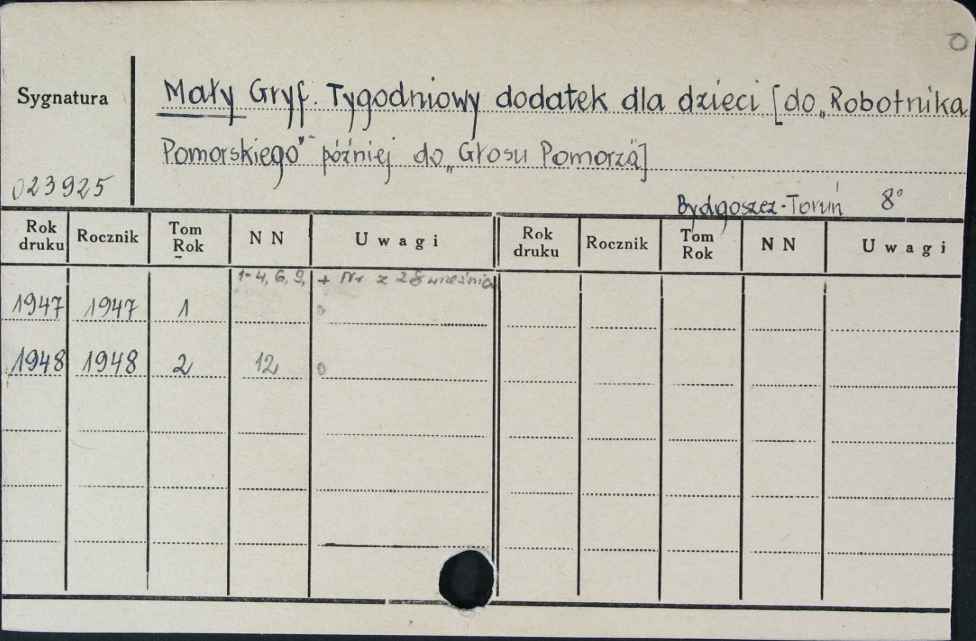 0
Sygnatura
Mały Gryf. Tygodniowy dodatek dla dzieci [do „Robotnika
Pomorskiego" później do „Głosu Pomorza]
023925
Bydgoszcz-Toruń 8°
Rok druku Rocznik Tom Rok NN Uwagi Rok druku Rocznik Tom Rok NN Uwagi
1-4, 6, 9, + Nr z 28 września
1947 1947 1 0
1948 1948 2 12 0